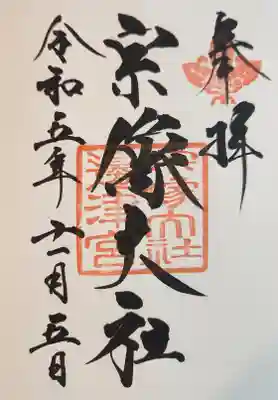 奉拝
宗像大社
宗像大社
邊津宮
令和五年十一月五日